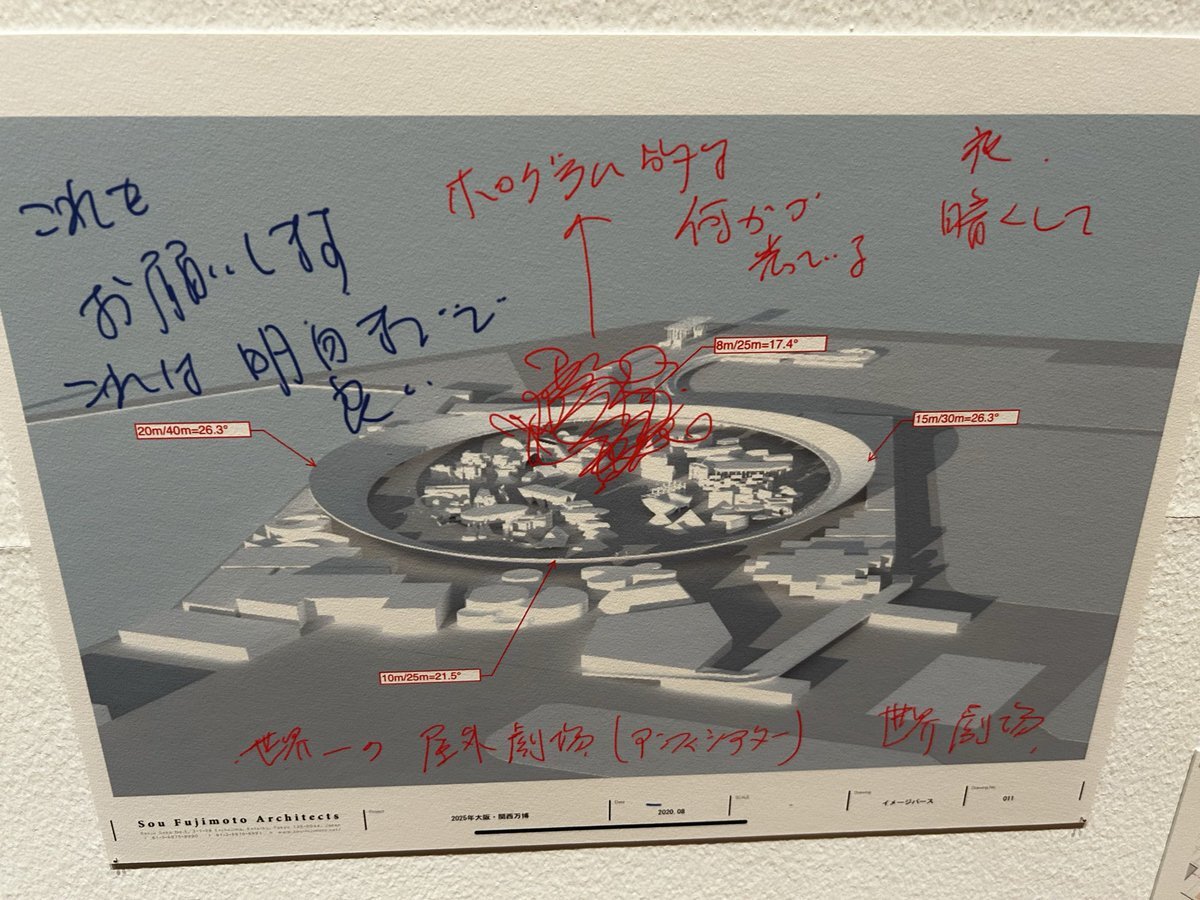 これも
お願いします
これは明日まで
良い
ホログラム的な
何かが
光っている
夜.
暗くして
8m/25m=17.4°
20m/40m=26.3°
15m/30m=26.3°
10m/25m=21.5°
世界一の 屋外劇場 (アンフィシアター)
世界劇場
Sou Fujimoto Architects
Project
2025年大阪・関西万博
Date
2020. 08
SCALE
-
Drawing
イメージパース
Drawing No.
011